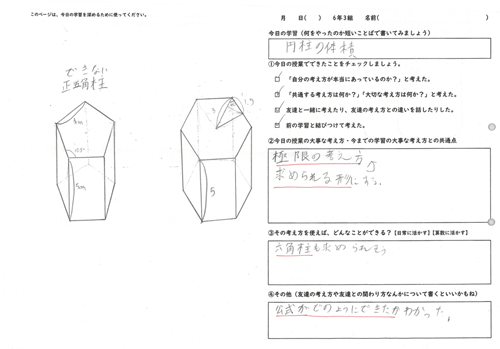 このページは、今日の学習を深めるために使ってください。
できない
正五角柱
5m
5
月 日( ) 6年3組 名前( )
今日の学習(何をやったのか短いことばで書いてみましょう)
円柱の体積
①今日の授業でできたことをチェックしましょう。
「自分の考え方が本当にあっているのか?」と考えた。
「共通する考え方は何か?」「大切な考え方は何か?」と考えた。
友達と一緒に考えたり、友達の考えとの違いを話したりした。
前の学習と結びつけて考えた。
②今日の授業の大事な考え方・今までの学習の大事な考え方との共通点
極限の考え方
求められる形にする。
③その考え方を使えば、どんなことができる?【日常に活かす】【算数に活かす】
六角柱も求められそう
④その他(友達の考え方や友達との関わり方なんかについて書くといいかもね)
公式がどのようにできたかわかった。